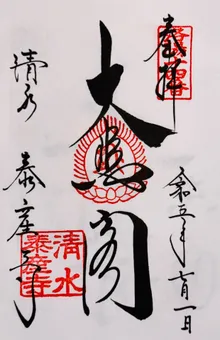 奉拝
令和五年
月一日
大悲閣
清水
泰産寺
清水
泰産寺